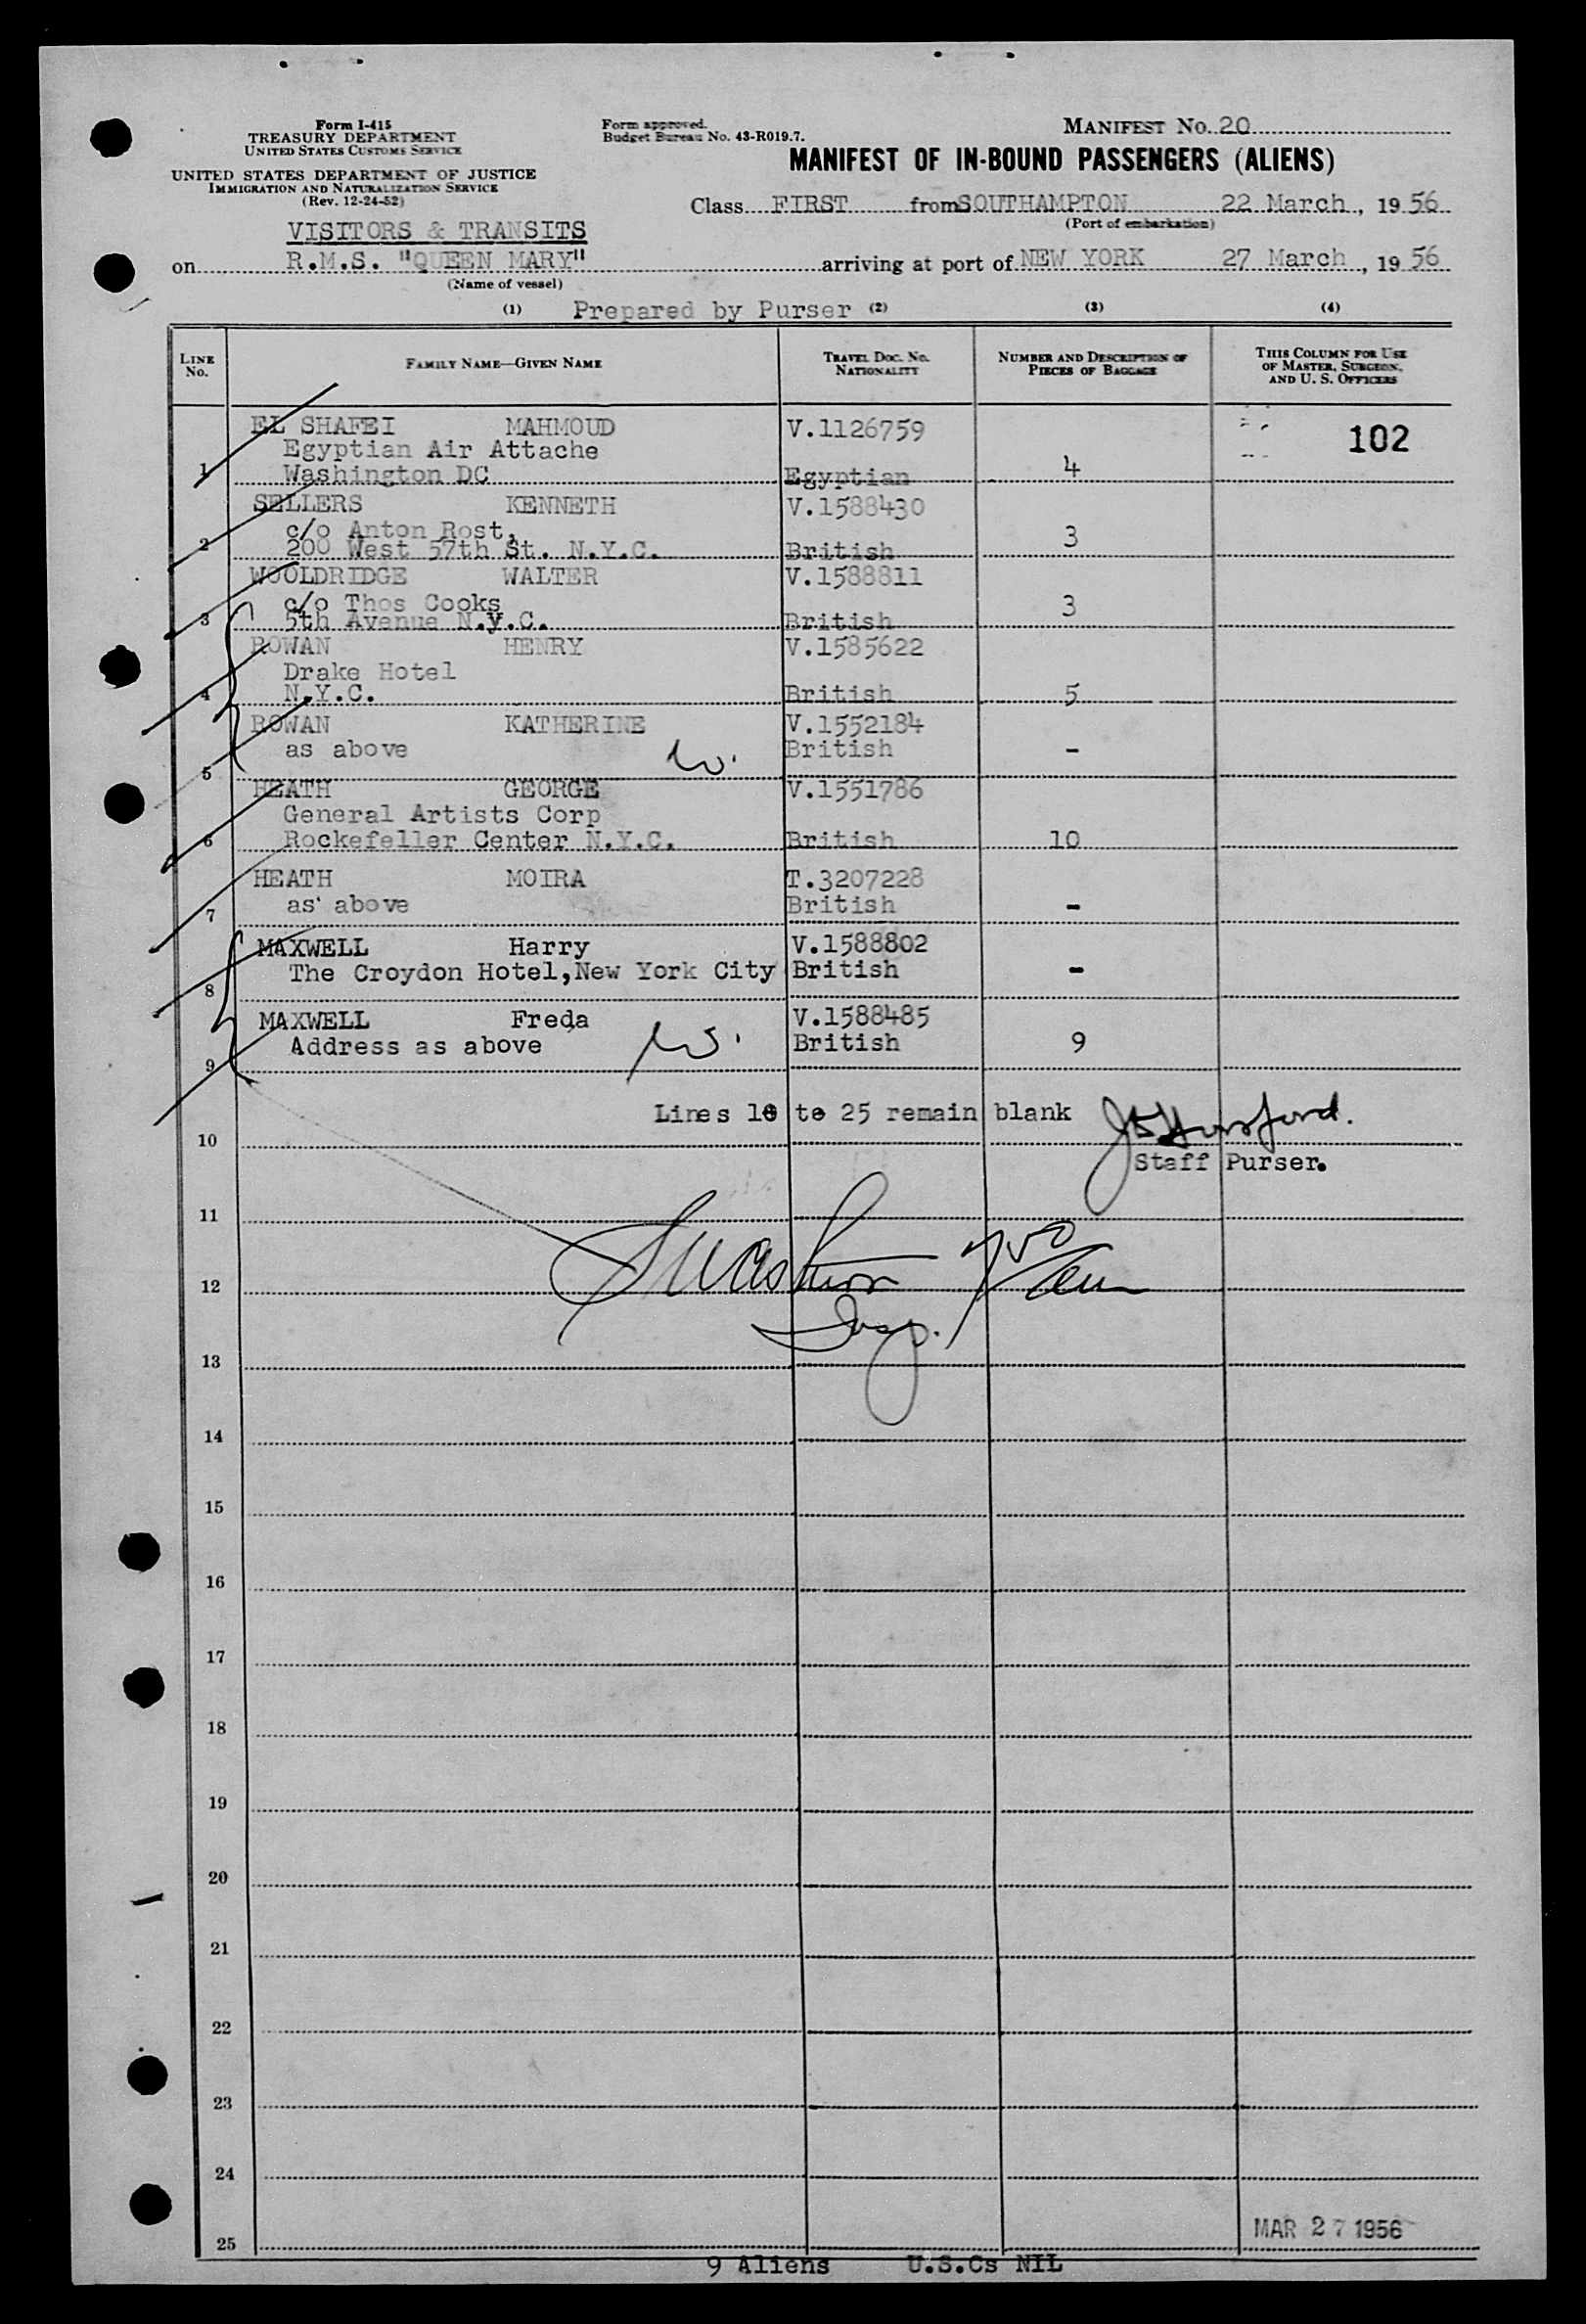 Form I-415
TREASURY DEPARTMENT
UNITED STATES CUSTOMS SERVICE
UNITED STATES DEPARTMENT OF JUSTICE
IMMIGRATION AND NATURALIZATION SERVICE
(Rev. 12-24-52)
Form approved.
Budget Bureau No. 43-R019.7.
MANIFEST No. 20
MANIFEST OF IN-BOUND PASSENGERS (ALIENS)
Class FIRST from SOUTHAMPTON 22 March, 1956
(Port of embarkation)
VISITORS & TRANSITS
on R.M.S. "QUEEN MARY" arriving at port of NEW YORK 27 March, 1956
(Name of vessel)
(1) Prepared by Purser (2) (3) (4)
LINE No. FAMILY NAME—GIVEN NAME TRAVEL DOC. No. NATIONALITY NUMBER AND DESCRIPTION OF PIECES OF BAGGAGE THIS COLUMN FOR USE OF MASTER, SURGEON, AND U. S. OFFICERS
EL SHAFEI MAHMOUD V.1126759 102
Egyptian Air Attache
1 Washington DC Egyptian 4
SELLERS KENNETH V.1588430
c/o Anton Rost,
2 200 West 57th St. N.Y.C. British 3
WOOLDRIDGE WALTER V.1588811
c/o Thos Cooks
3 5th Avenue N.y.C. British 3
ROWAN HENRY V.1585622
Drake Hotel
4 N.Y.C. British 5
ROWAN KATHERINE V.1552184
as above British -
5
HEATH GEORGE V.1551786
General Artists Corp
6 Rockefeller Center N.Y.C. British 10
HEATH MOIRA T.3207228
7 as above British -
MAXWELL Harry V.1588802
The Croydon Hotel,New York City British -
8
MAXWELL Freda V.1588485
Address as above British 9
9
Lines 10 to 25 remain blank
10
Staff Purser.
11
12
Insp.
13
14
15
16
17
18
19
20
21
22
23
24
MAR 27 1956
25
9 Aliens U.S.Cs NIL